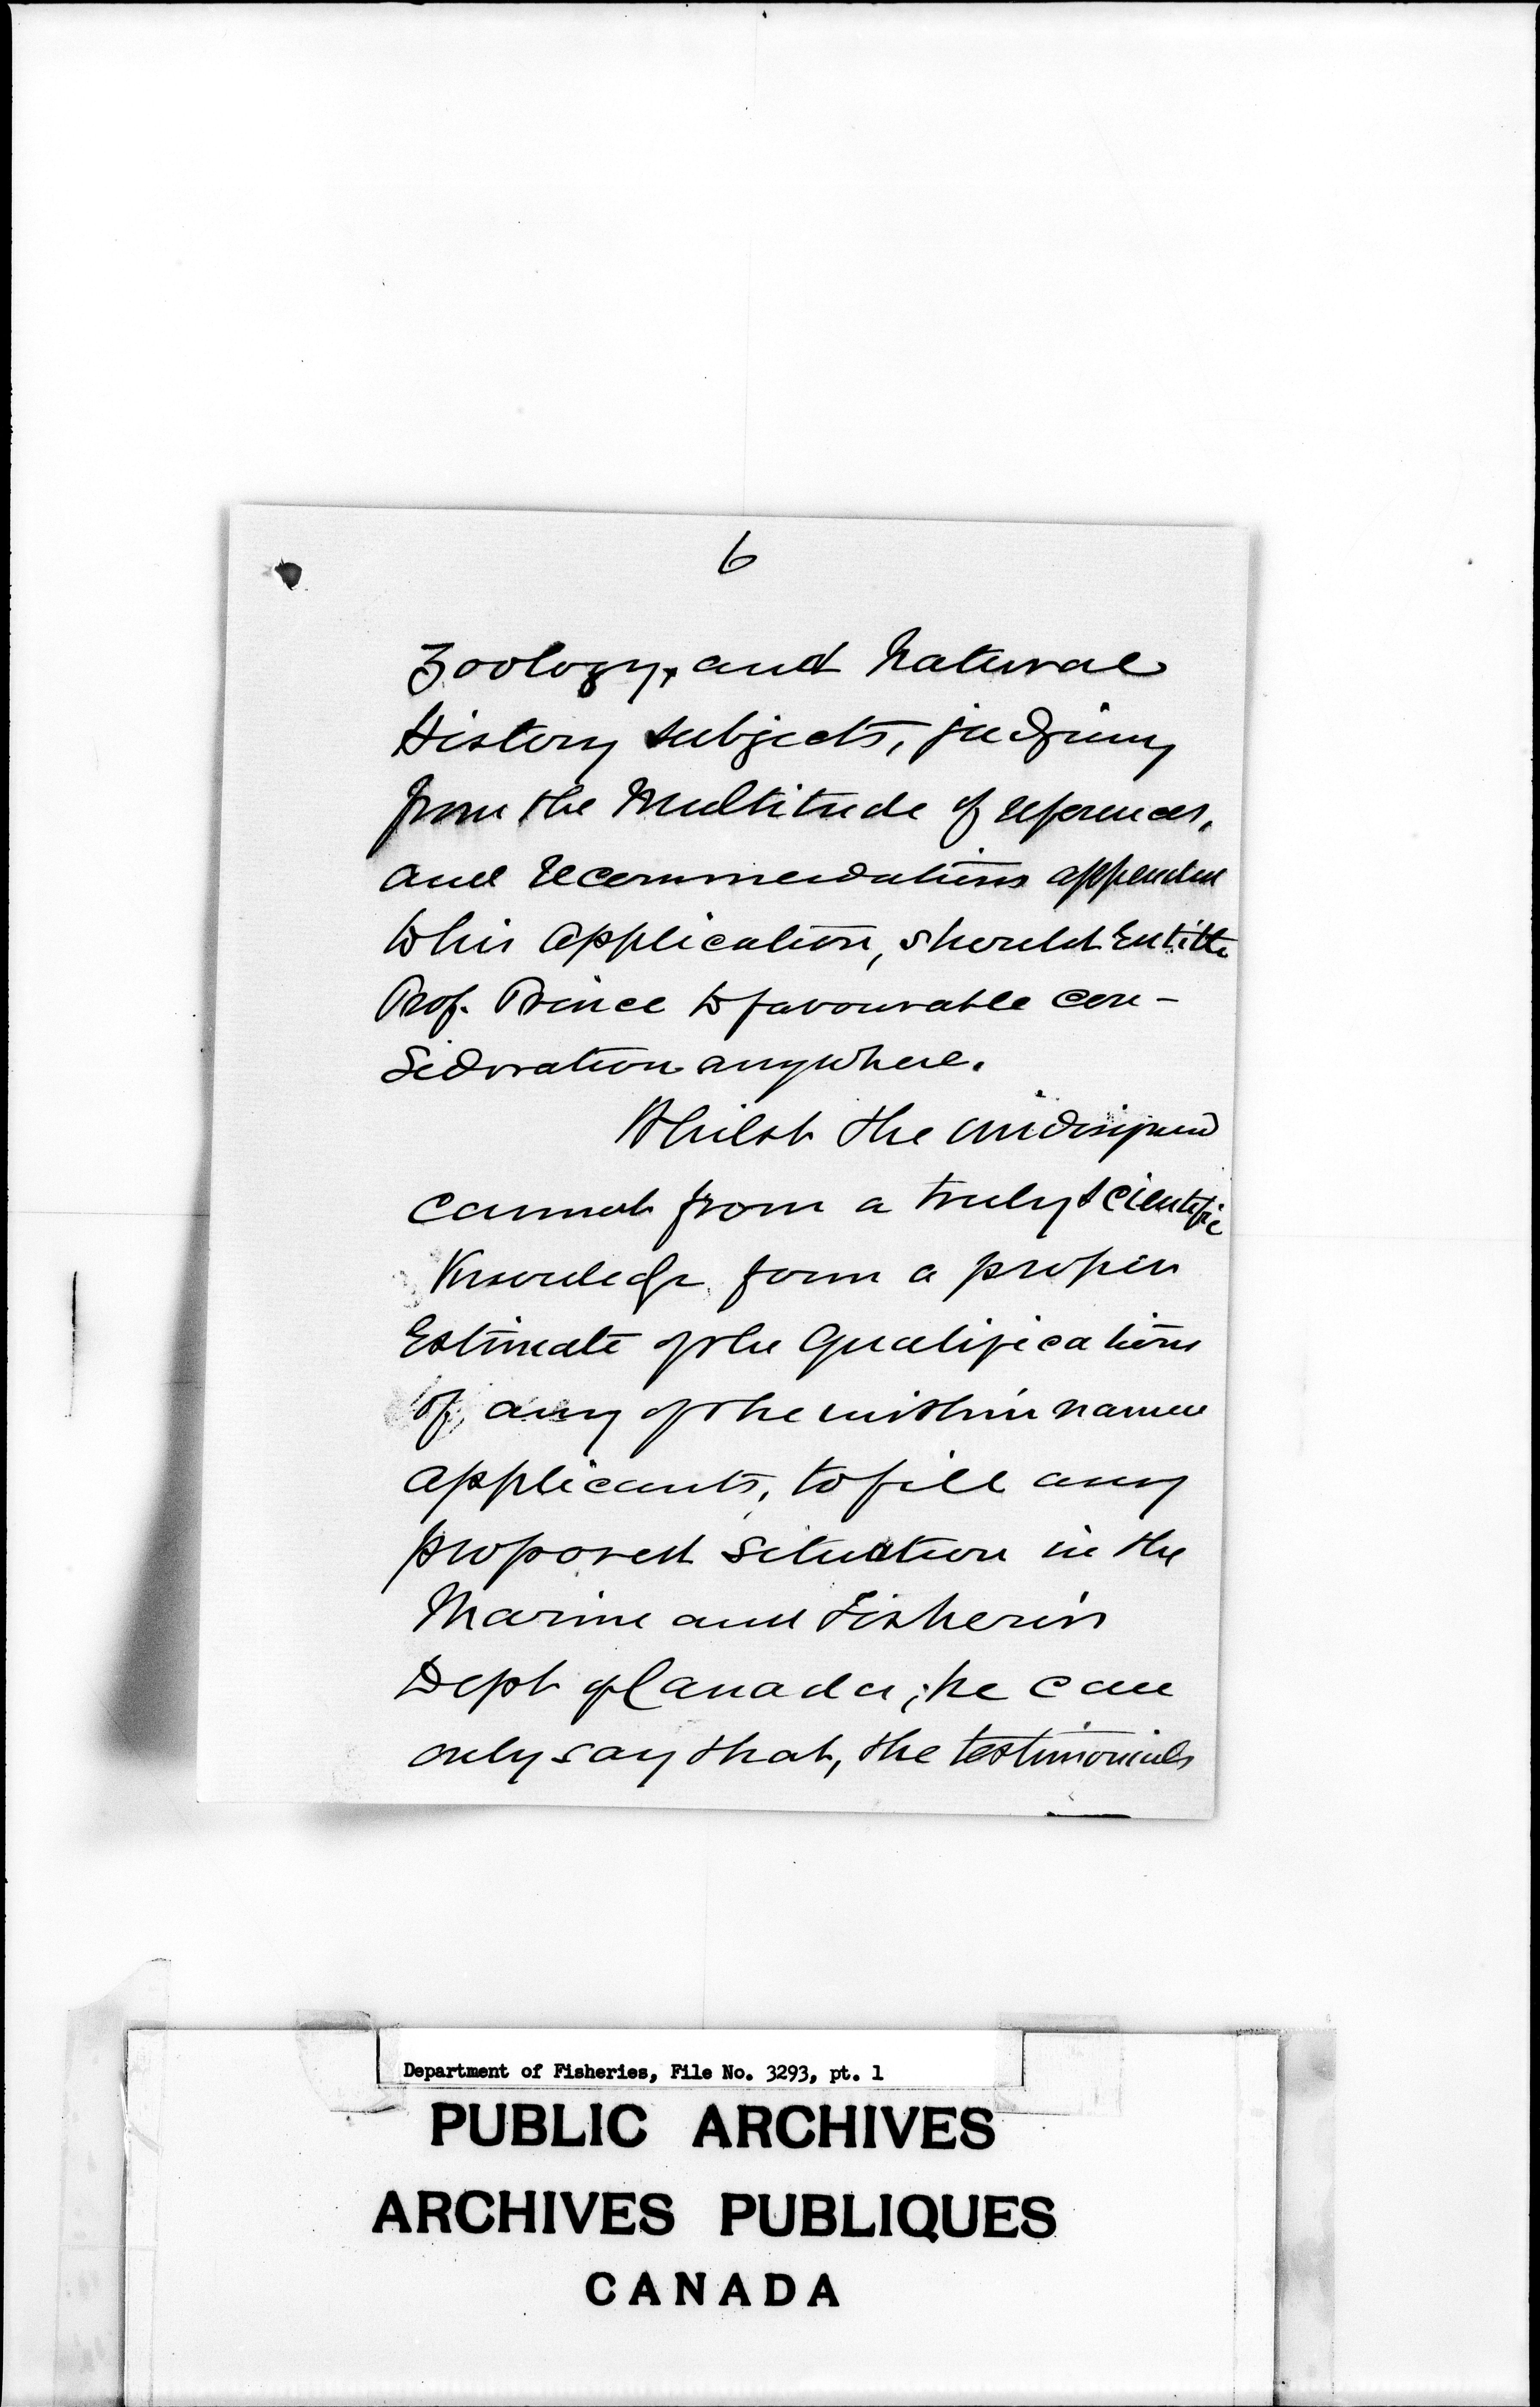 6
Zoology, and Natural
History subjects, judging
from the multitude of references,
and recommendations appended
to his application, should entitle
Prof. Prince to favourable con-
sideration anywhere.
Whilst the undersigned
cannot from a truly scientific
knowledge form a proper
Estimate of the qualifications
of any of the within named
applicants, to fill any
proposed situation in the
Marine and Fisheries
Dept of Canada; he can
only say that, the testimonials
Department of Fisheries, File No. 3293, pt. 1
PUBLIC ARCHIVES
ARCHIVES PUBLIQUES
CANADA